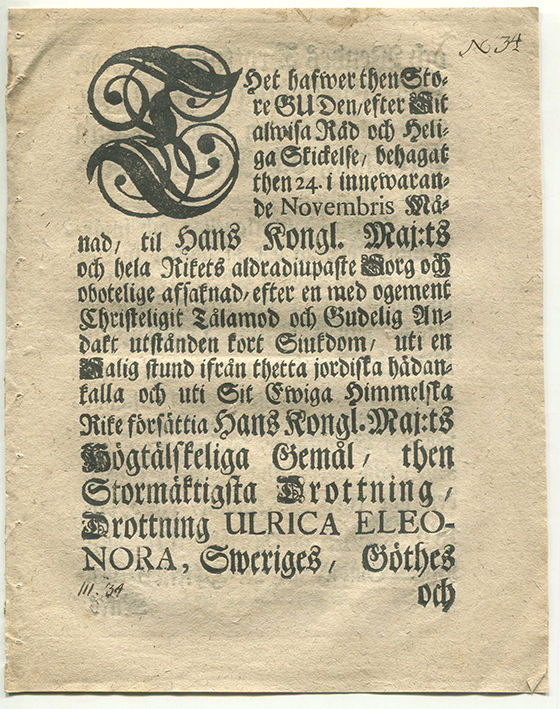 N 34
THet hafwer then Sto-
re GUDen/ efter Sit
alwisa Råd och Heli-
ga Skickelse/ behagat
then 24. i innewaran-
de Novembris Må-
nad/ til Hans Kongl. Maj:ts
och hela Rikets aldradiupaste Sorg och
obotelige afsaknad/ efter en med ogement
Christeligit Tålamod och Gudelig An-
dakt utstånden kort Siukdom/ uti en
Salig stund ifrån thetta jordiska hädan-
kalla och uti Sit Ewiga Himmelska
Rike försättia Hans Kongl. Maj:ts
Högtälskeliga Gemål/ then
Stormäktigsta Drottning/
Drottning ULRICA ELEO-
NORA, Sweriges/ Göthes
och
III. 34